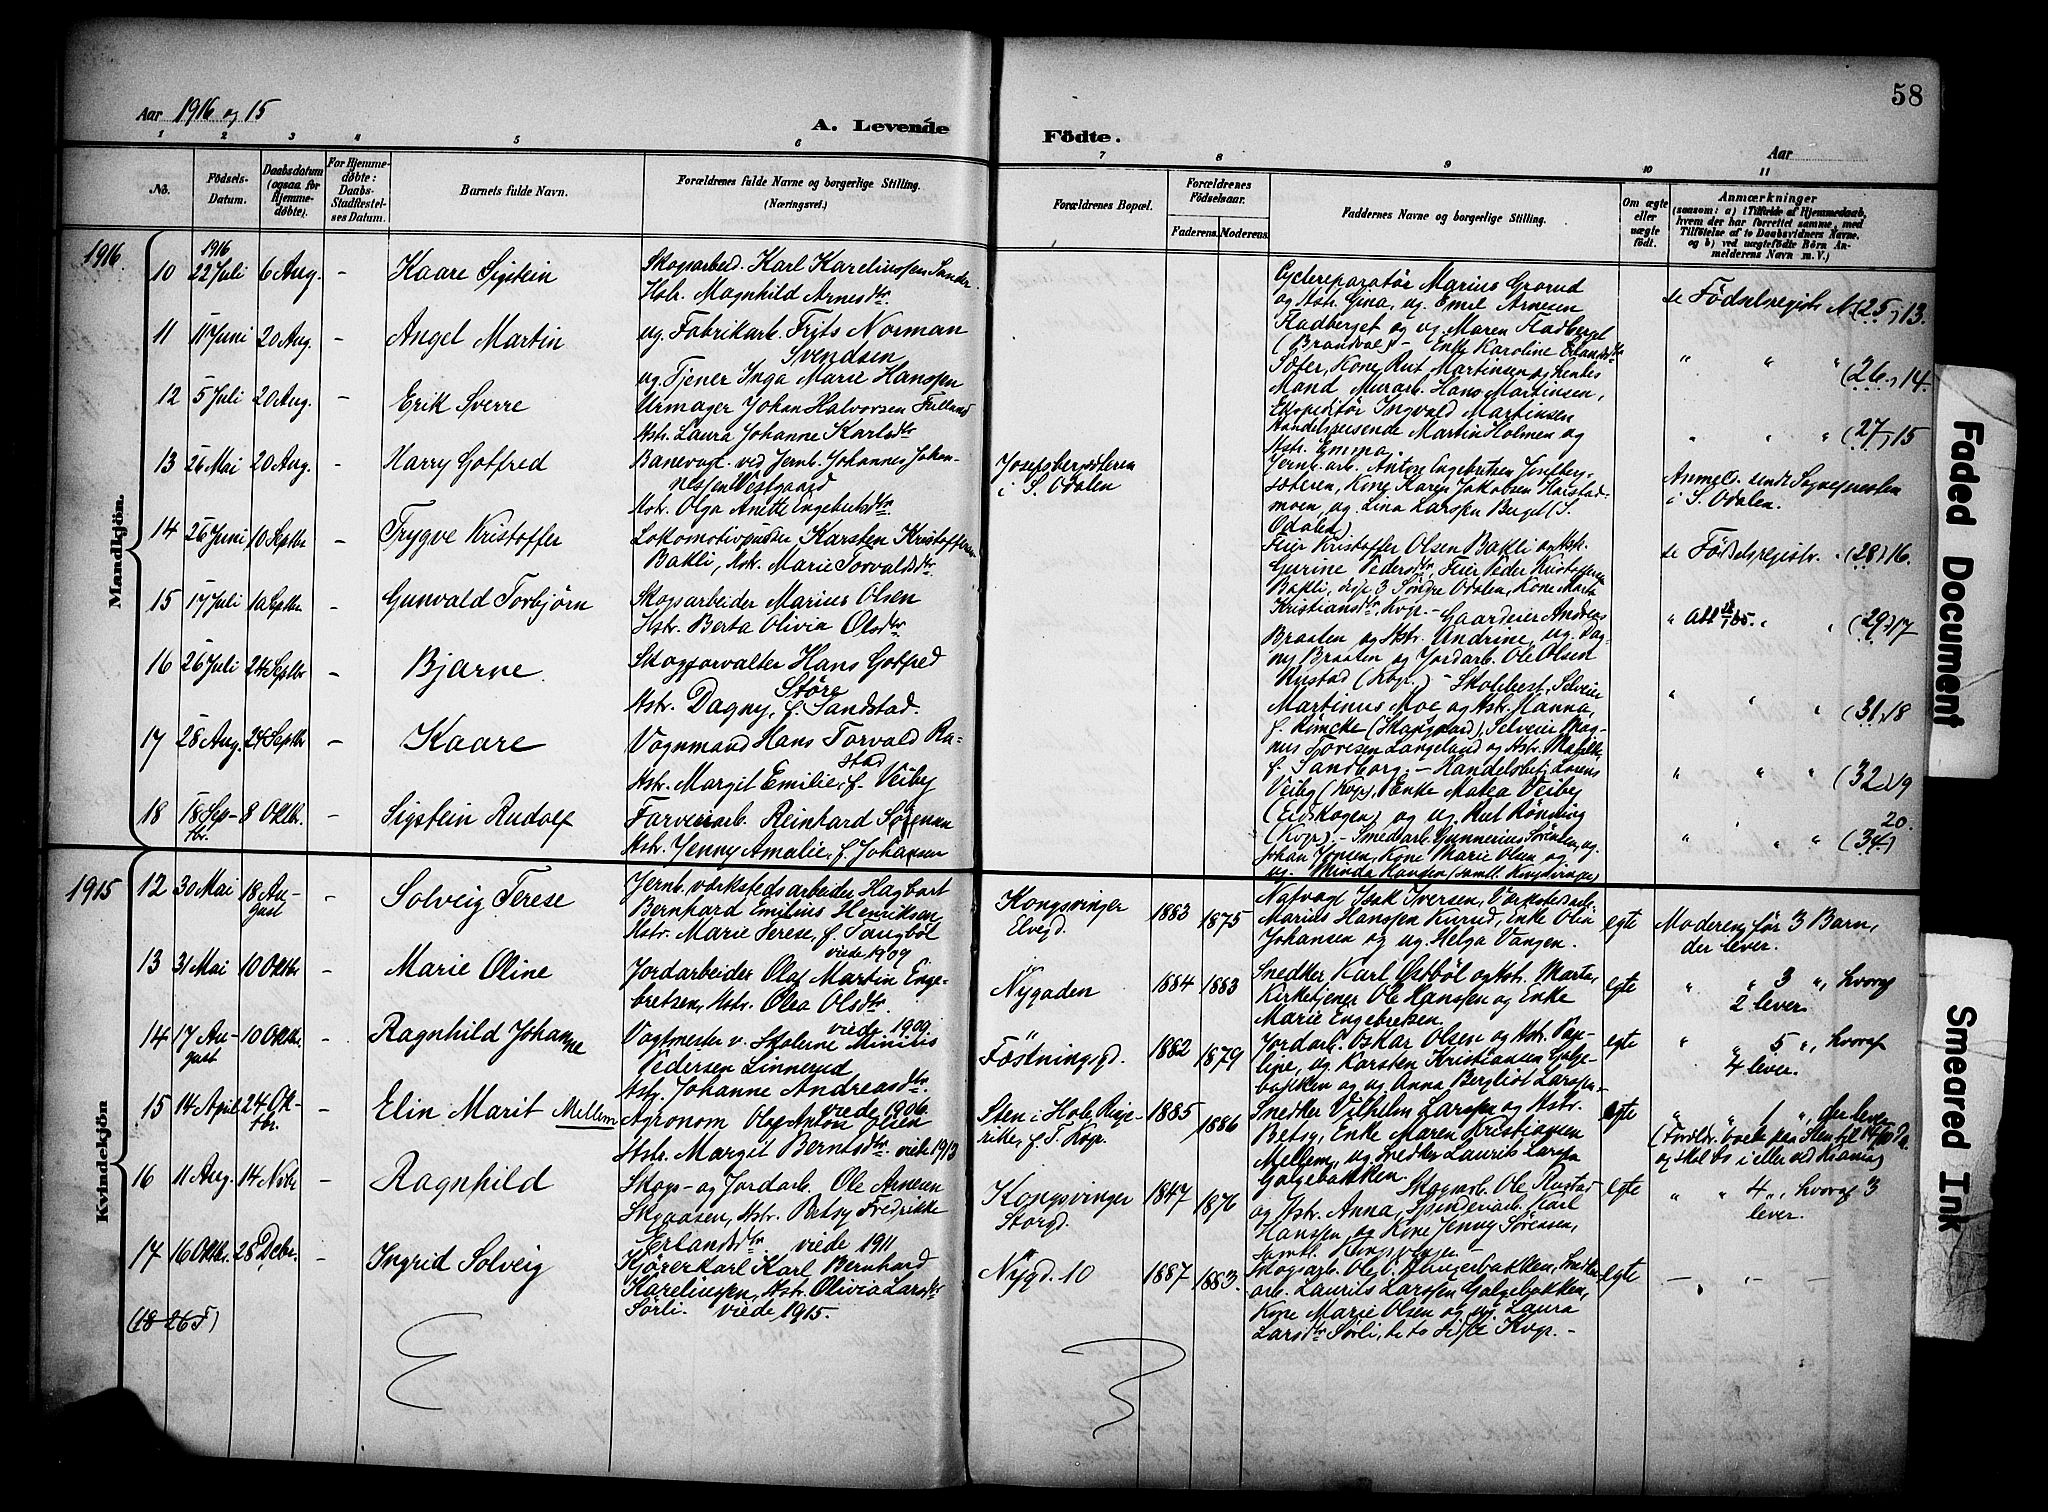 58
Aar 1916 og 15
A. Levende Födte.
Aar
1 2 3 4 5 6 7 8 9 10 11
No.
Födsels-Datum.
Daabsdatum (ogsaa for Hjemme-döbte).
For Hjemme-döbte: Daabs-Stadfæstel-ses Datum.
Barnets fulde Navn.
Forældrenes fulde Navne og borgerlige Stilling. (Næringsvei.)
Forældrenes Bopæl.
Forældrenes Födselsaar.
Faderens. Moderens.
Faddernes Navne og borgerlige Stilling.
Om ægte eller uægte födt.
Anmærkninger
(saasom: a) i Tilfælde af Hjemmedaab, hvem der har forrettet samme, med Tilföielse af to Daabsvidners Navne. og b) ved uægtefödte Börn An-melderens Navn m. V.)
Mandkjön.
1916.
1916
10 22 Juli 6 Aug. – Kaare Sigstein
Skogsarbed. Karl Karelinssen Sander.
Hstr. Magnhild Arnesdtr
Cyclereparatør Marius Grorud
og Hstr. Gina, ug. Emil Arnesen
Fladberget og ug. Maren Fladberget
(Brandval) –
se Födselregistr. No (25,) 13.
11 11 Juni 20 Aug. – Angel Martin
ug. Fabrikarb. Frits Norman
Svendsen
ug. Tjener Inga Marie Hanssen
Enke Karoline Erlandsdtr
Sæter, Kone Rut Martinsen og hendes
Mand Murarb. Hans Martinsen,
Ekspeditör Ingvald Martinsen
" " " (26,) 14.
12 5 Juli 20 Aug. – Erik Sverre
Urmager Johan Halvorsen Fulland
Hstr. Laura Johanne Karlsdtr
Handelsreisende Martin Holmen og
Hstr. Emma.
" " " (27) 15
13 26 Mai 20 Aug. – Harry Gotfred
Banevogt ved Jernb. Johannes Johan-
nessen Vestgaard
Hstr. Olga Anette Engebretsdtr
Josefsbergsæteren
i S. Odalen
Jernb. arb. Anton Engebretsen Josefberg-
sæteren, Kone Karen Jakobsen Harstad-
moen, ug. Lina Larssen Berget (S.
Odalen)
Anmeld. sendt Sognepresten
i S. Odalen.
14 26 Juni 10 Septbr – Trygve Kristoffer
Lokomotivpudser Karsten Kristoffersen
Bakli, Hstr. Marie Torvaldsdtr.
Feier Kristoffer Olsen Bakli og Hstr.
Gurine Pedersdtr, Feier Peder Kristoffersen
Bakli, Søndre Odalen, Kone Marte
Kristiansdtr, Kvgr. –
se Födselsregistr. " (28) 16.
15 17 Juli 10 Septbr – Gunvald Torbjörn
Skogsarbeider Marius Olsen
Hstr. Berta Olivia Olsdtr
Gaardeier Andreas
Braaten og Hstr. Andrine, ug. Dag-
ny Braaten og Jordarb. Ole Olsen
Rustad (Kvgr.) –
" " " (29) 17
16 26 Juli 24 Septbr – Bjarne.
Skogforvalter Hans Gotfred
Störe
Hstr. Dagny, f. Sandstad.
Skolebest. Selveier
Martinus Moe og Hstr. Hanna,
f. Römcke (Skansgaard), Selveier Mag-
nus Toresen Langeland og Hstr. Matilde,
f. Sandborg. –
" " " (31) 18
17 28 Aug. 24 Septbr – Kaare
Vognmand Hans Torvald Ra-
stad
Hstr. Margit Emilie, f. Veiby
Handelsbetj. Lorens
Veiby (Kvgr), Enke Matea Veiby
(Eidskogen) og ug. Rut Rönning
(Kvgr.). –
" " " (32) 19
18 18 Sep-tbr. 8 Oktbr. – Sigstein Rudolf
Farveriarb. Reinhard Sörensen
Hstr. Jenny Amalie, f. Johansen
Smedarb. Gunnerius Sörensen, ug.
Johan Jonsen, Kone Marie Olsen og
ug. Minda Hansen (samtl. Kongsvinger)
" " " (34) 20.
Kvindekjön
1915
12 30 Mai 18 Au-gust – Solveig Terese
Jernb. værkstedsarbeider Hagbart
Bernhard Emilius Henriksen
Hstr. Marie Terese, f. Taugböl
viede 1909
Kongsvinger
Elvegd.
1883 1875
Natvagt Isak Iversen, Værkstedsarb.
Marius Hanssen Kurud, Enke Olin
Johansen og ug. Helga Vangen.
egte
Moderen för 3 Barn,
der lever.
13 31 Mai 10 Oktbr – Marie Oline
Jordarbeider Olaf Martin Enge-
bretsen, Hstr. Olea Olsdtr
viede 1909.
Nygaden
1884 1883
Snedker Karl Østböl og Hstr. Marta,
Kirketjener Ole Hanssen og Enke
Marie Engebretsen.
egte
" " 3 ", hvoraf
2 lever.
14 17 Au-gust 10 Oktbr. – Ragnhild Johanne
Vagtmester v. Skolerne Minius
Pedersen Linnerud
Hstr. Johanne Andreasdtr
viede 1906.
Föstningsgd.
1882 1879
Jordarb. Oskar Olsen og Hstr. Pau-
line, ug. Karsten Kristiansen Galge-
bakken og ug. Anna Bergliot Larssen –
egte
" " 5 ", hvoraf
4 lever.
15 14 April 24 Ok-tbr. – Elin Marit Mellem
Agronom Olaf Anton Olsen
Hstr. Margit Berntsdtr. viede 1913
Sten i Hole, Ringe-
rike, f. T. Kvgr.
1885 1886
Snedker Vilhelm Larssen og Hstr.
Betsy, Enke Maren Kristiansen
Mellem, ug. Snedker Laurits Larssen
Galgebakken.
egte
" " 1 ", der lever
16 11 Aug. 14 Novbr – Ragnhild
Skogs- og Jordarb. Ole Arnesen
Skaaasen, Hstr. Betsy Fredrikke
Erlandsdtr viede 1911
Kongsvinger
Storgd.
1847 1876
Skogsarb. Ole Rustad
og Hstr. Anna, Spinderiarb. Karl
Hanssen og Kone Jenny Sörensen,
samtl. Kongsvinger –
egte
" " 4 ", hvoraf 3
lever.
17 16 Oktbr. 28 Decbr. – Ingrid Solveig
Kjörerkarl Karl Bernhard
Karelinssen, Hstr. Olivia Larsdtr
Sörli. viede 1915.
Nygd. 10
1887 1883.
Skogsarb. Ole O. Tingerbakken, Snedker-
arb. Laurits Larssen Galgebakken,
Kone Marie Olsen og ug. Laura
Larsdtr Sörli, de to sidste Kvgr. –
egte
– " –
(18 26 F)
Faded Document
Smeared Ink